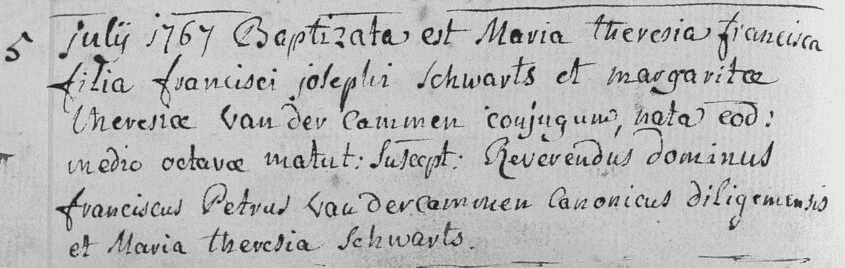 5 julij 1767 Baptizata est Maria theresia francisca
filia francisci josephi Schwarts et margaritæ
theresiæ Van der Cammen conjugum, nata eod:
medio octavæ matut: suscept: Reverendus dominus
franciscus Petrus Van der cammen Canonicus diligemensis
et Maria theresia Schwarts.